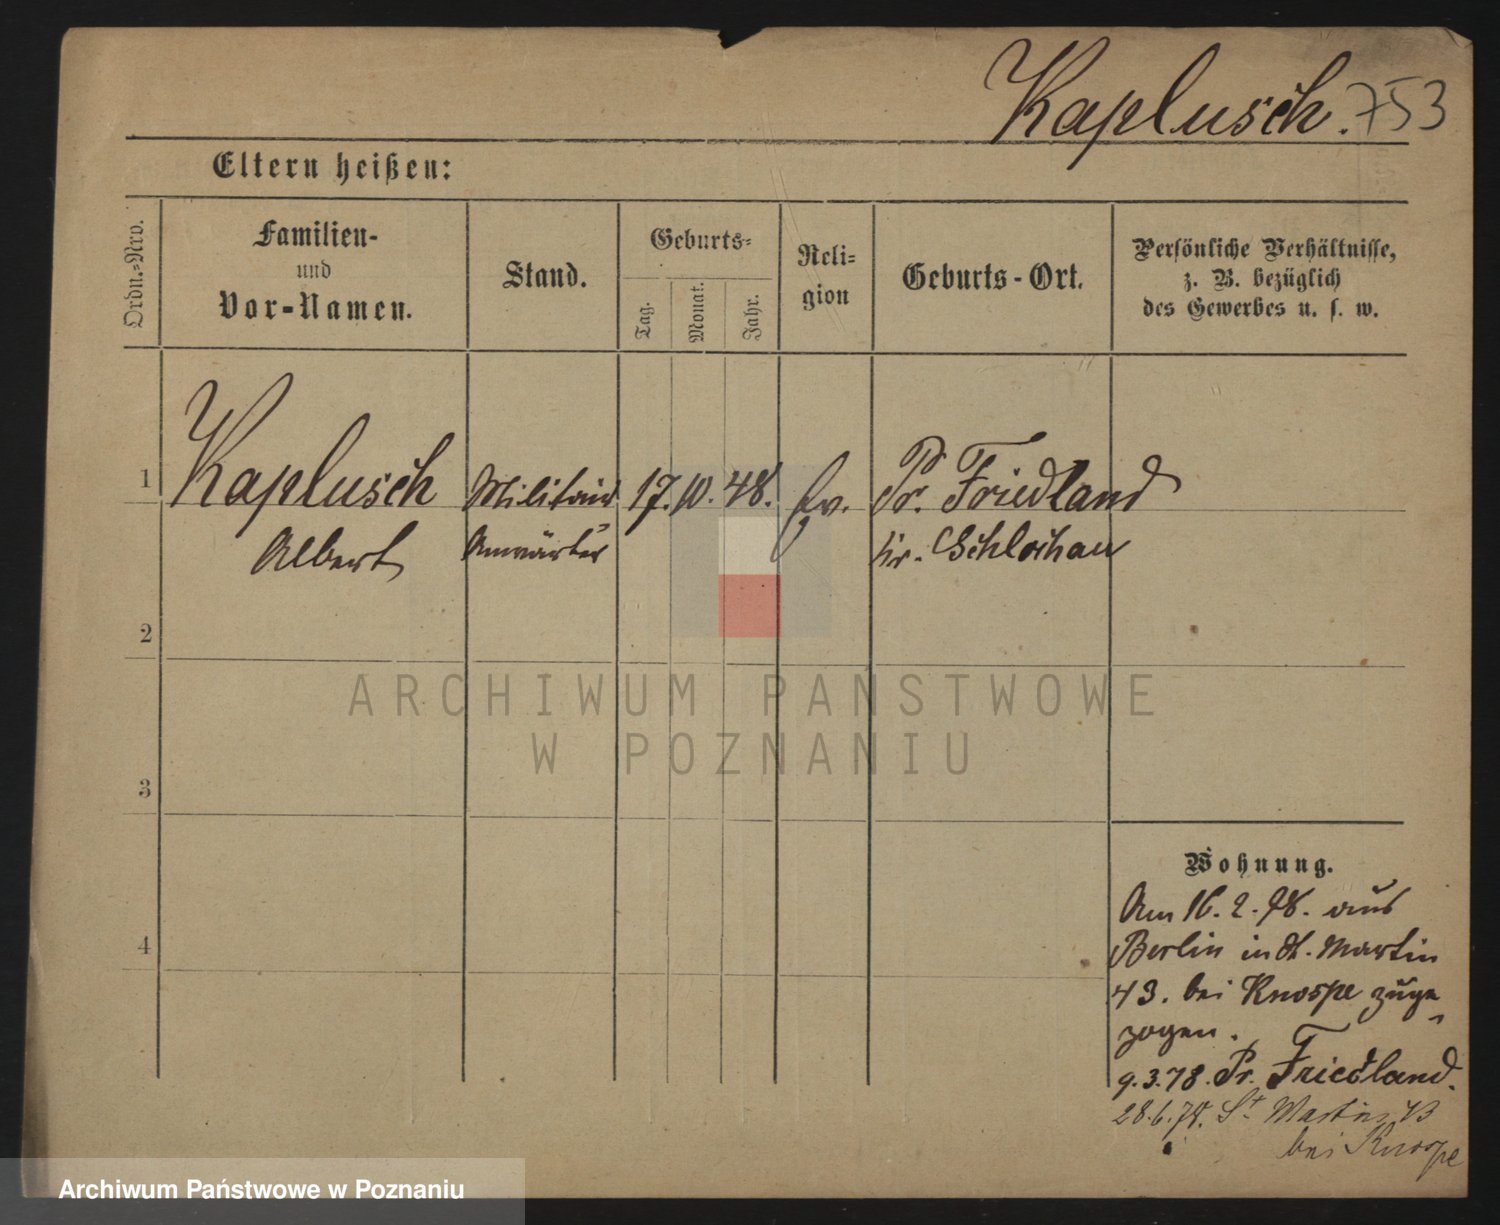 Kaplusch. 753
Eltern heißen:
Ordn.-Nro.
Familien-
und
Vor-Namen.
Stand.
Geburts-
Tag.
Monat.
Jahr.
Reli-
gion
Geburts-Ort.
Persönliche Verhältnisse,
z. B. bezüglich
des Gewerbes u. s. w.
1 Kaplusch Militair 17. 10. 48. Ev. Pr. Friedland
Albert Anwärter Kr. Schlochau
2
3
4
Wohnung.
Am 16. 2. 78. aus
Berlin in St. Martin
43. bei Knospe zuge-
zogen.
9. 3. 78. Pr. Friedland.
28. 6. 78. St Martin 43
bei Knospe
ARCHIWUM PAŃSTWOWE
W POZNANIU
Archiwum Państwowe w Poznaniu